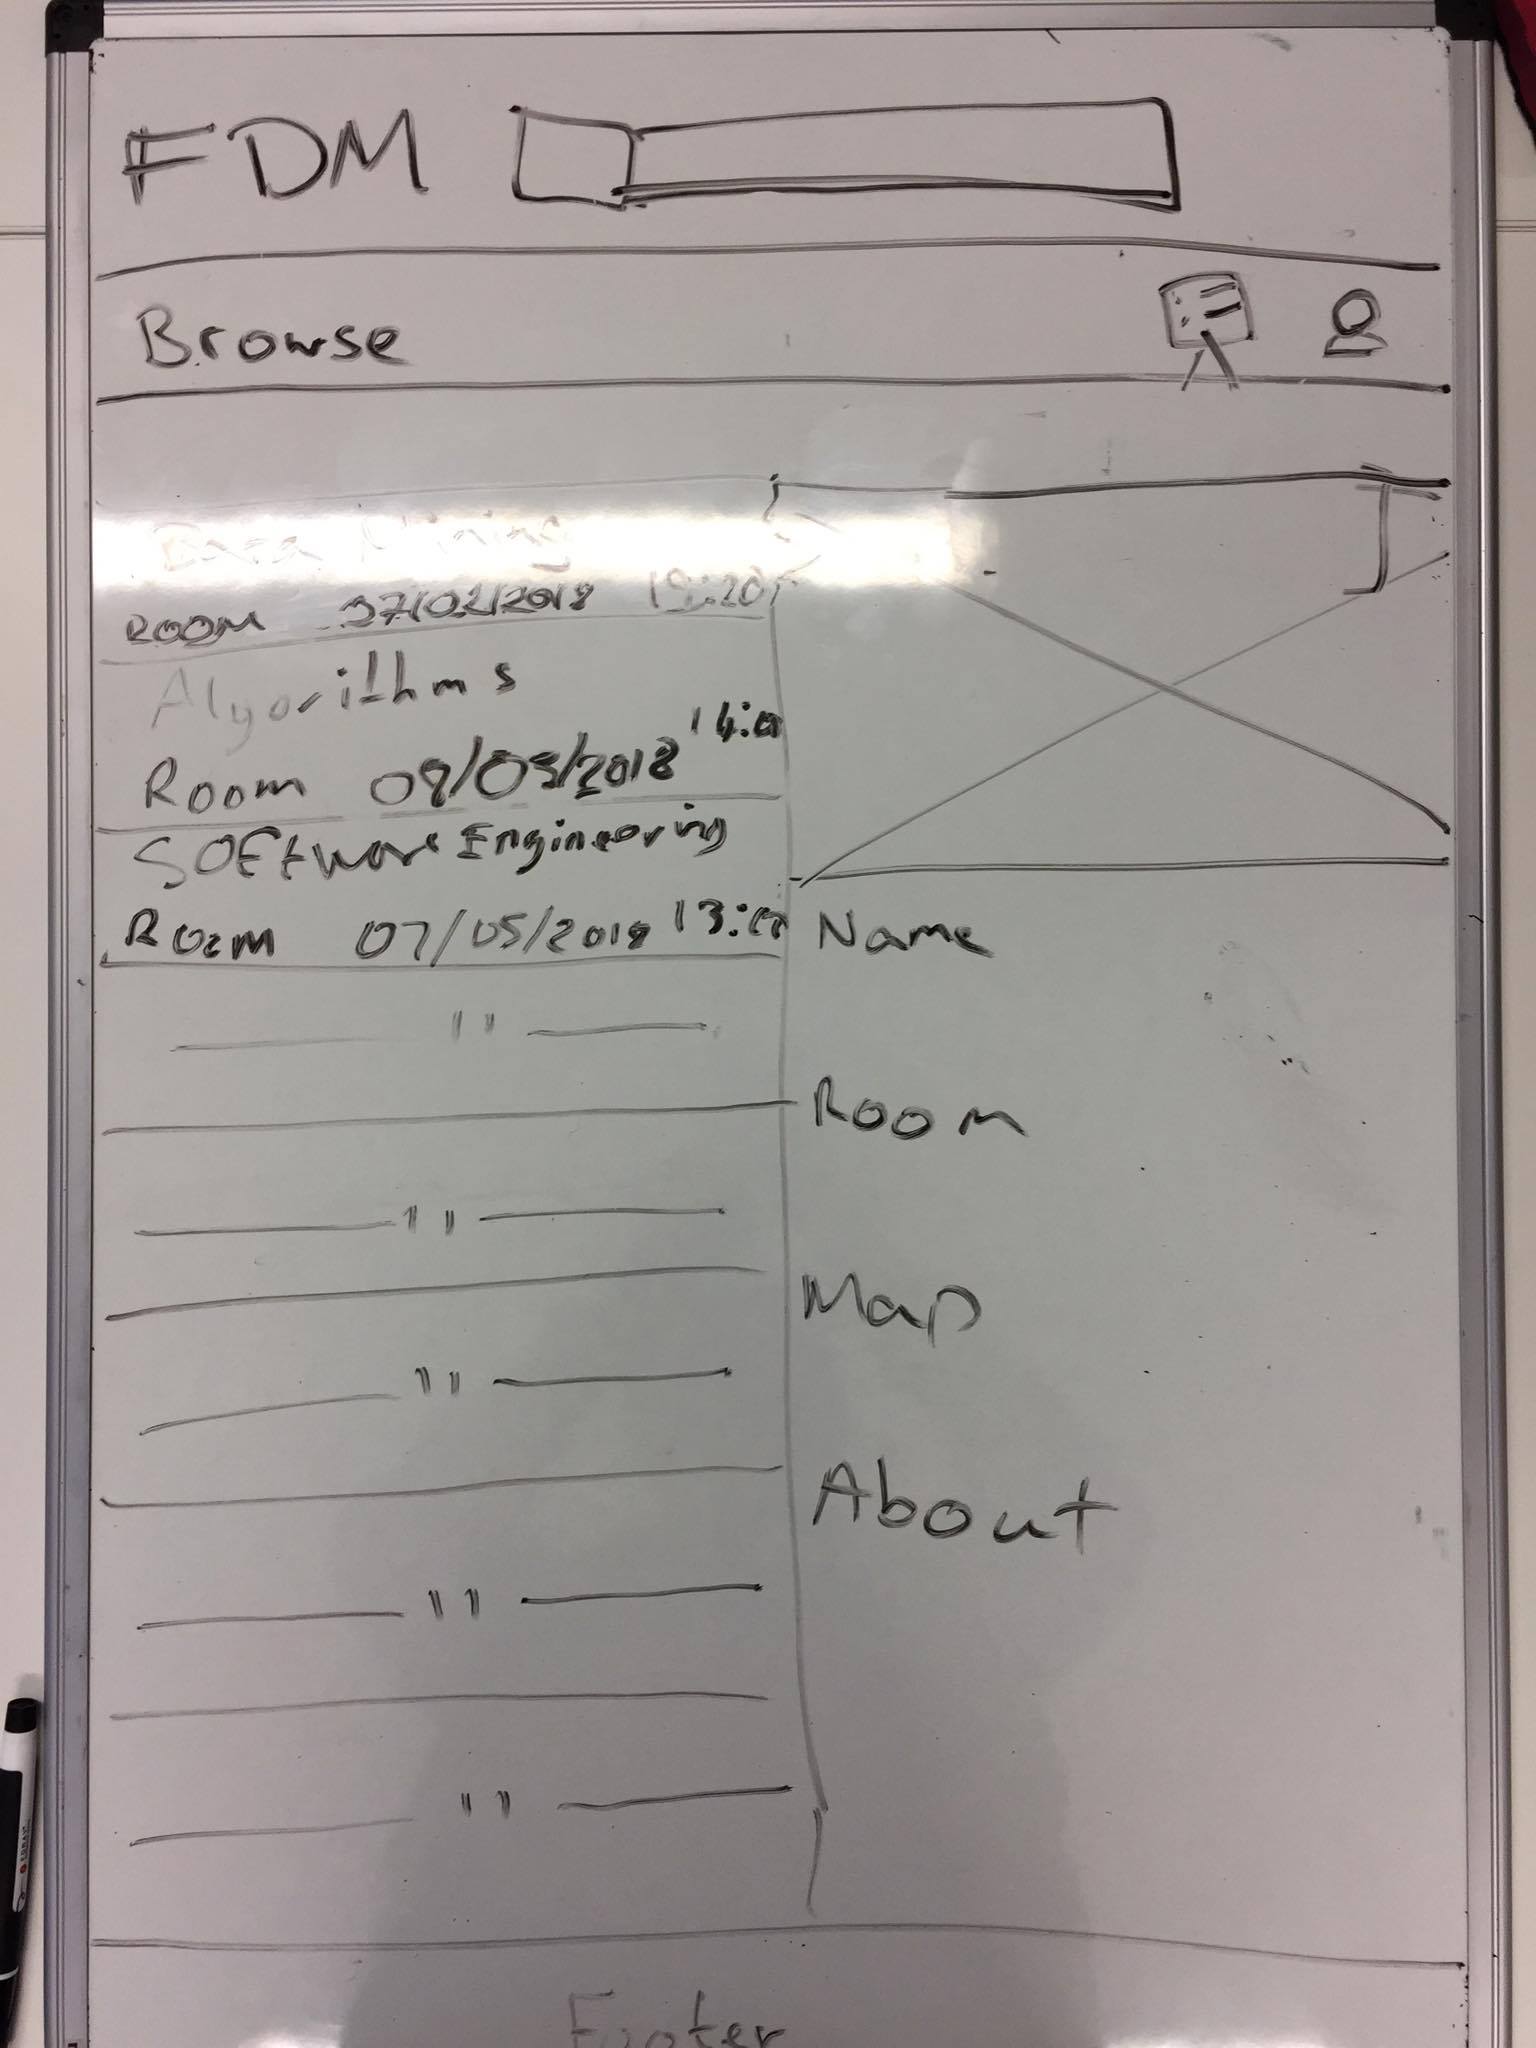 FDM
Browse
Data Mining
ROOM
Algorithms
Room 09/05/2018
Software Engineering
Room 07/05/2018
" "
Name
Room
" "
Map
" "
About
" "
" "
Footer